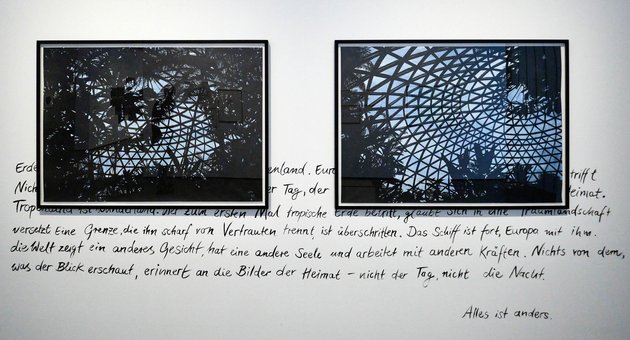 Erde enland. Euro trifft
Nich er Tag, der Heimat.
Tropenland ist Wunderland. Wer zum ersten Mal tropische Erde betritt, glaubt sich in eine Traumlandschaft
versetzt Eine Grenze, die ihn scharf von Vertrauten trennt, ist überschritten. Das Schiff ist fort, Europa mit ihm.
die Welt zeigt ein anderes Gesicht, hat eine andere Seele und arbeitet mit anderen Kräften. Nichts von dem,
was der Blick erschaut, erinnert an die Bilder der Heimat – nicht der Tag, nicht die Nacht.
Alles ist anders.